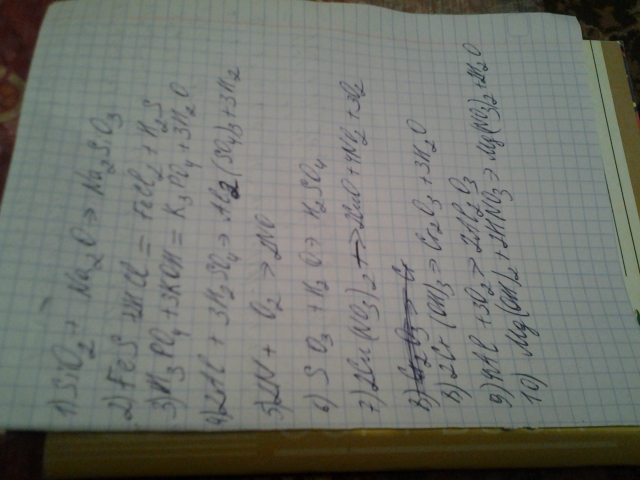 1) SiO2 + Na2O → Na2SiO3
2) FeS + 2HCl = FeCl2 + H2S
3) H3PO4 + 3KOH = K3PO4 + 3H2O
4) 2Al + 3H2SO4 → Al2(SO4)3 + 3H2
5) 2N + O2 → 2NO
6) SO3 + H2O → H2SO4
7) 2Cu(NO3)2 → 2CuO + 4NO2 + 3O2
8) 2Cr(OH)3 → Cr2O3 + 3H2O
9) 4Al + 3O2 → 2Al2O3
10) Mg(OH)2 + 2HNO3 → Mg(NO3)2 + 2H2O